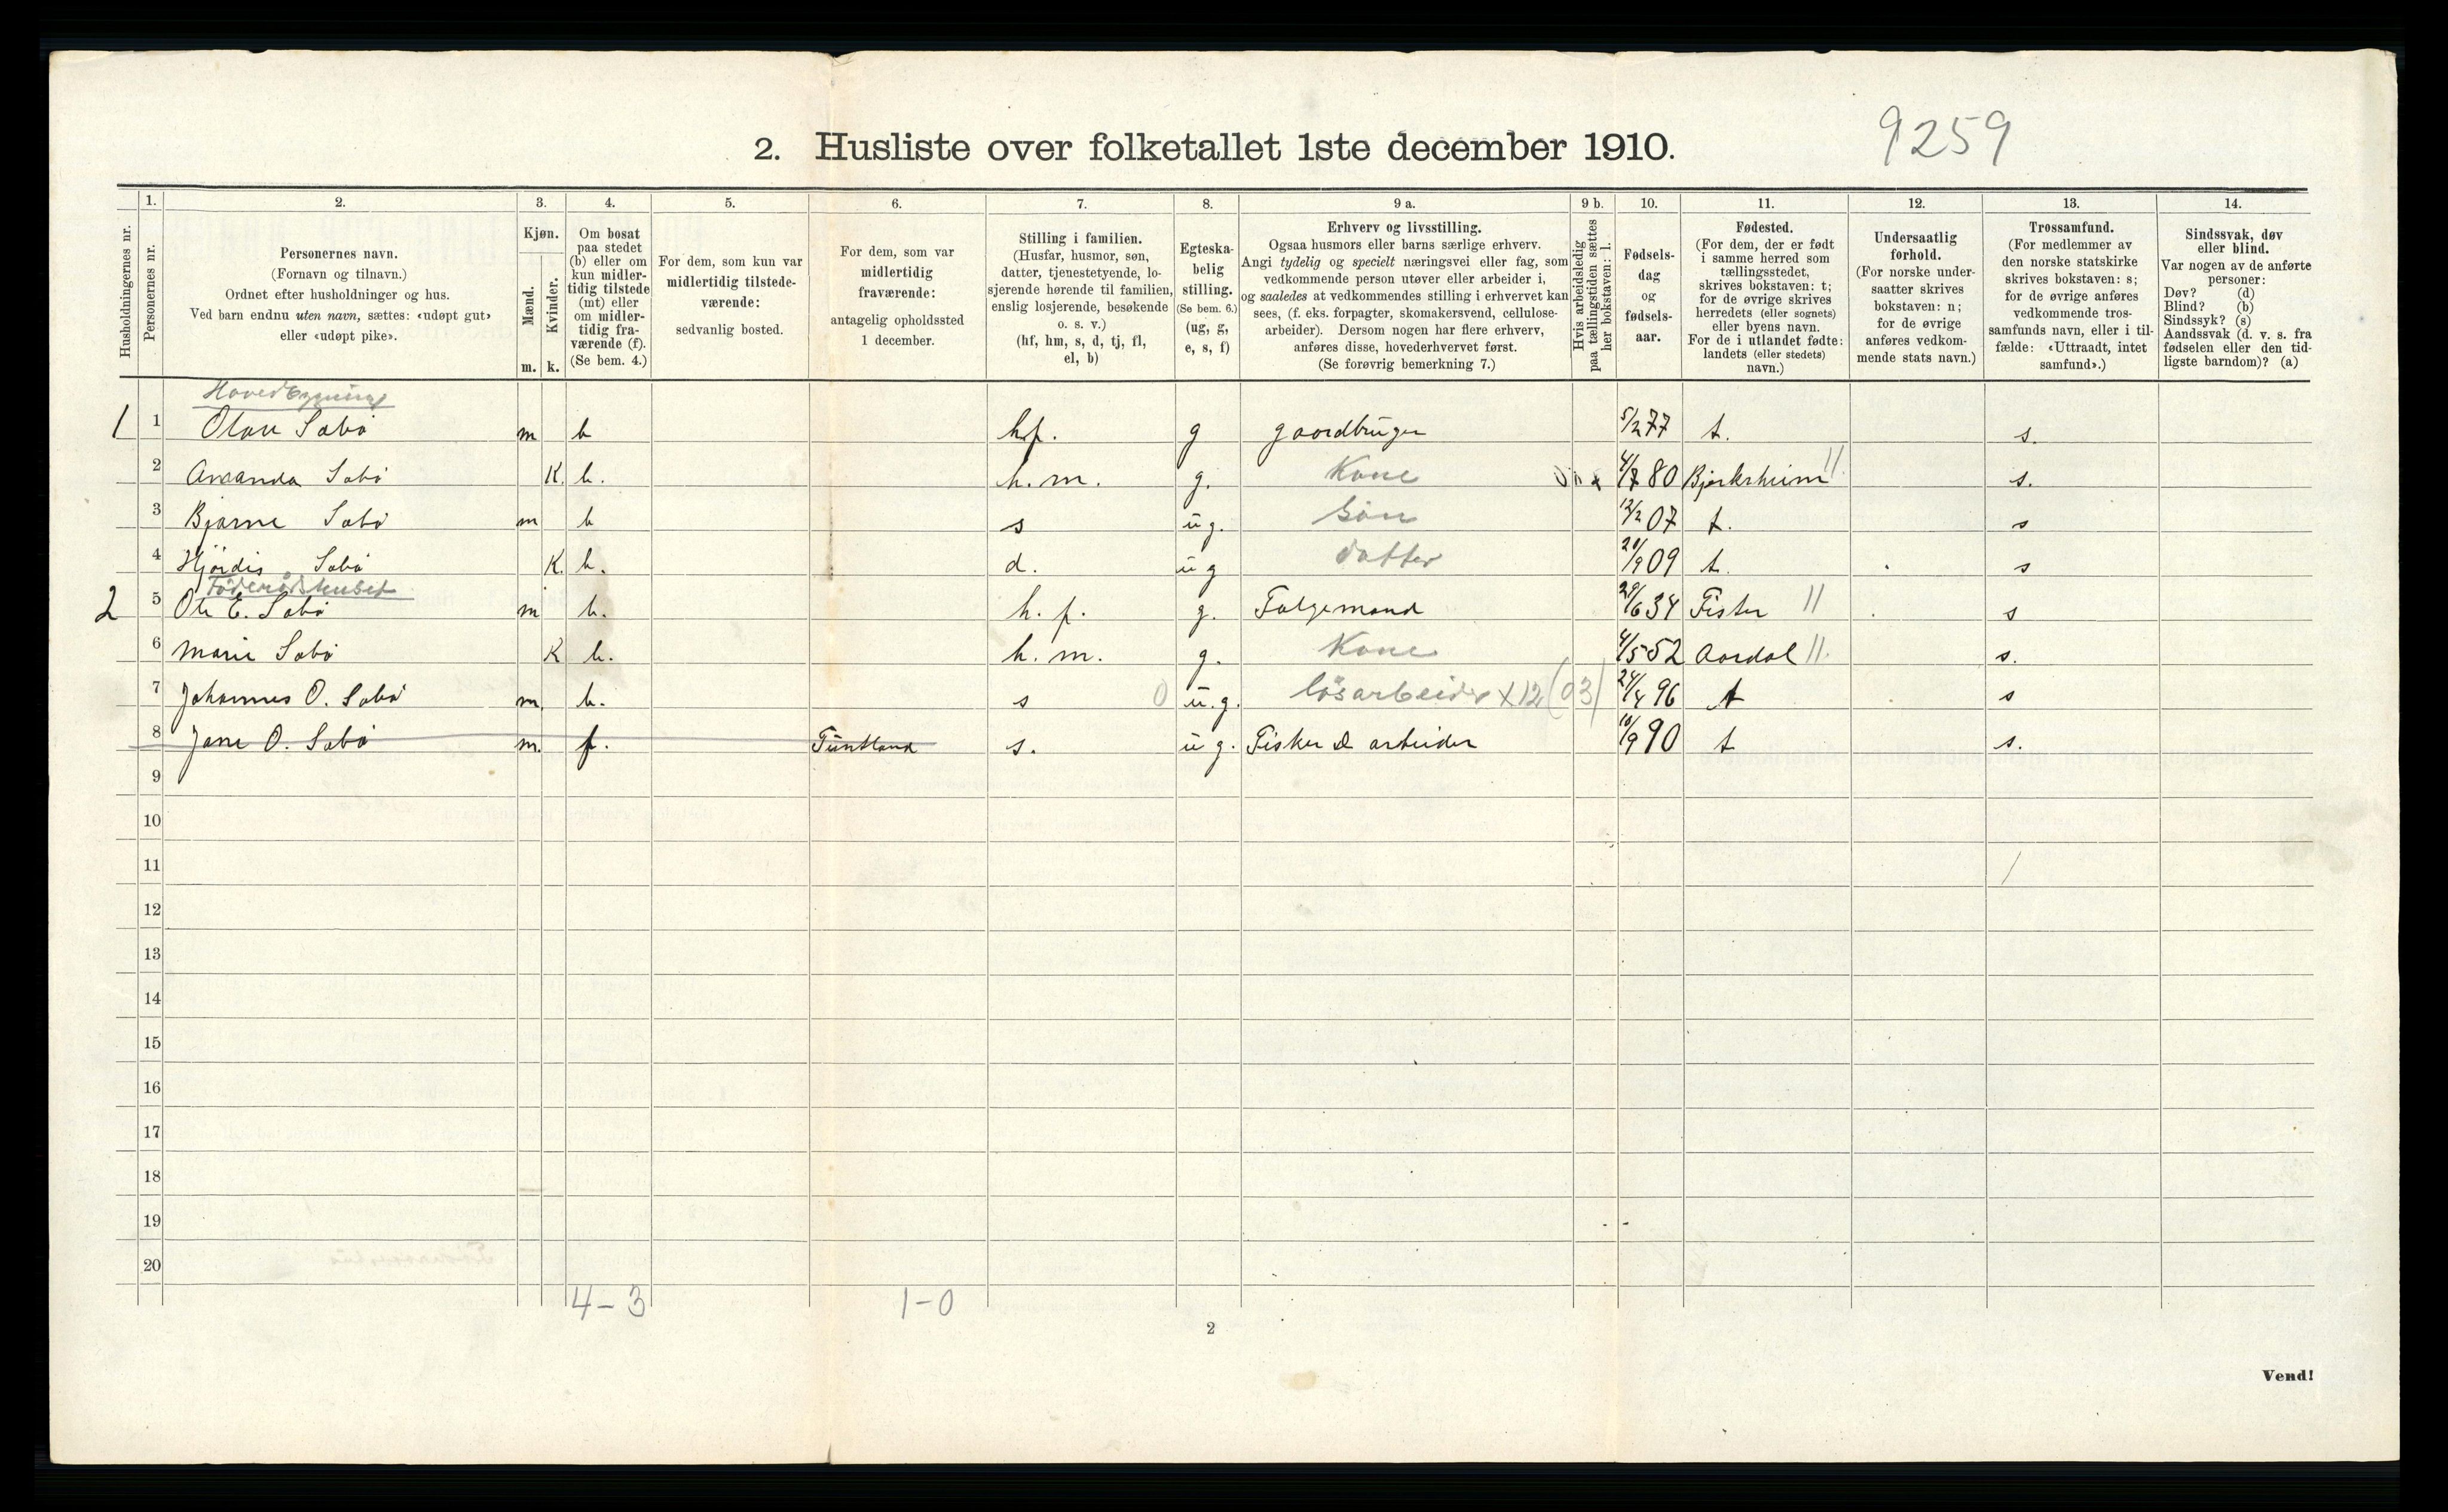 9259
2. Husliste over folketallet 1ste december 1910.
Husholdningernes nr.
1.
Personernes nr.
2.
Personernes navn.
(Fornavn og tilnavn.)
Ordnet efter husholdninger og hus.
Ved barn endnu uten navn, sættes: «udøpt gut»
eller «udøpt pike».
3.
Kjøn.
Mænd.
Kvinder.
m. k.
4.
Om bosat
paa stedet
(b) eller om
kun midler-
tidig tilstede
(mt) eller
om midler-
tidig fra-
værende (f).
(Se bem. 4.)
5.
For dem, som kun var
midlertidig tilstede-
værende:
sedvanlig bosted.
6.
For dem, som var
midlertidig
fraværende:
antagelig opholdssted
1 december.
7.
Stilling i familien.
(Husfar, husmor, søn,
datter, tjenestetyende, lo-
sjerende hørende til familien,
enslig losjerende, besøkende
o. s. v.)
(hf, hm, s, d, tj, fl,
el, b)
8.
Egteska-
belig
stilling.
(Se bem. 6.)
(ug, g,
e, s, f)
9 a.
Erhverv og livsstilling.
Ogsaa husmors eller barns særlige erhverv.
Angi tydelig og specielt næringsvei eller fag, som
vedkommende person utøver eller arbeider i,
og saaledes at vedkommendes stilling i erhvervet kan
sees, (f. eks. forpagter, skomakersvend, cellulose-
arbeider). Dersom nogen har flere erhverv,
anføres disse, hovederhvervet først.
(Se forøvrig bemerkning 7.)
9 b.
Hvis arbeidsledig
paa tællingstiden sættes
her bokstaven: l.
10.
Fødsels-
dag
og
fødsels-
aar.
11.
Fødested.
(For dem, der er født
i samme herred som
tællingsstedet,
skrives bokstaven: t;
for de øvrige skrives
herredets (eller sognets)
eller byens navn.
For de i utlandet fødte:
landets (eller stedets)
navn.)
12.
Undersaatlig
forhold.
(For norske under-
saatter skrives
bokstaven: n;
for de øvrige
anføres vedkom-
mende stats navn.)
13.
Trossamfund.
(For medlemmer av
den norske statskirke
skrives bokstaven: s;
for de øvrige anføres
vedkommende tros-
samfunds navn, eller i til-
fælde: «Uttraadt, intet
samfund».)
14.
Sindssvak, døv
eller blind.
Var nogen av de anførte
personer:
Døv? (d)
Blind? (b)
Sindssyk? (s)
Aandssvak (d. v. s. fra
fødselen eller den tid-
ligste barndom)? (a)
Hovedbygning
1 1 Olav Sabø m b hf. g gaardbruger 5/2 77 t. s.
2 Amanda Sabø K. b. h.m. g. Kone 80 Bjerkreim 11. s.
3 Bjarne Sabø m b s ug. Søn 12/2 07 t. s
4 Hjørdis Sabø K. b. d. ug datter 20/9 09 t. s
Føderådshuset
2 5 Ole E. Sabø m b. h.f. g. Folgemand 29/6 34 Fister 11 s
6 Marie Sabø K b. h.m. g. Kone 4/5 52 Aardal 11. s.
7 Johannes O. Sabø m. b. s 0 u.g. løsarbeider x12 (03) 24/4 96 t s
8 Jane O. Sabø m. f. Tuntland s. ug. Fisker & arbeider 10/9 90 t s.
9
10
11
12
13
14
15
16
17
18
19
20
4-3 1-0
2
Vend!